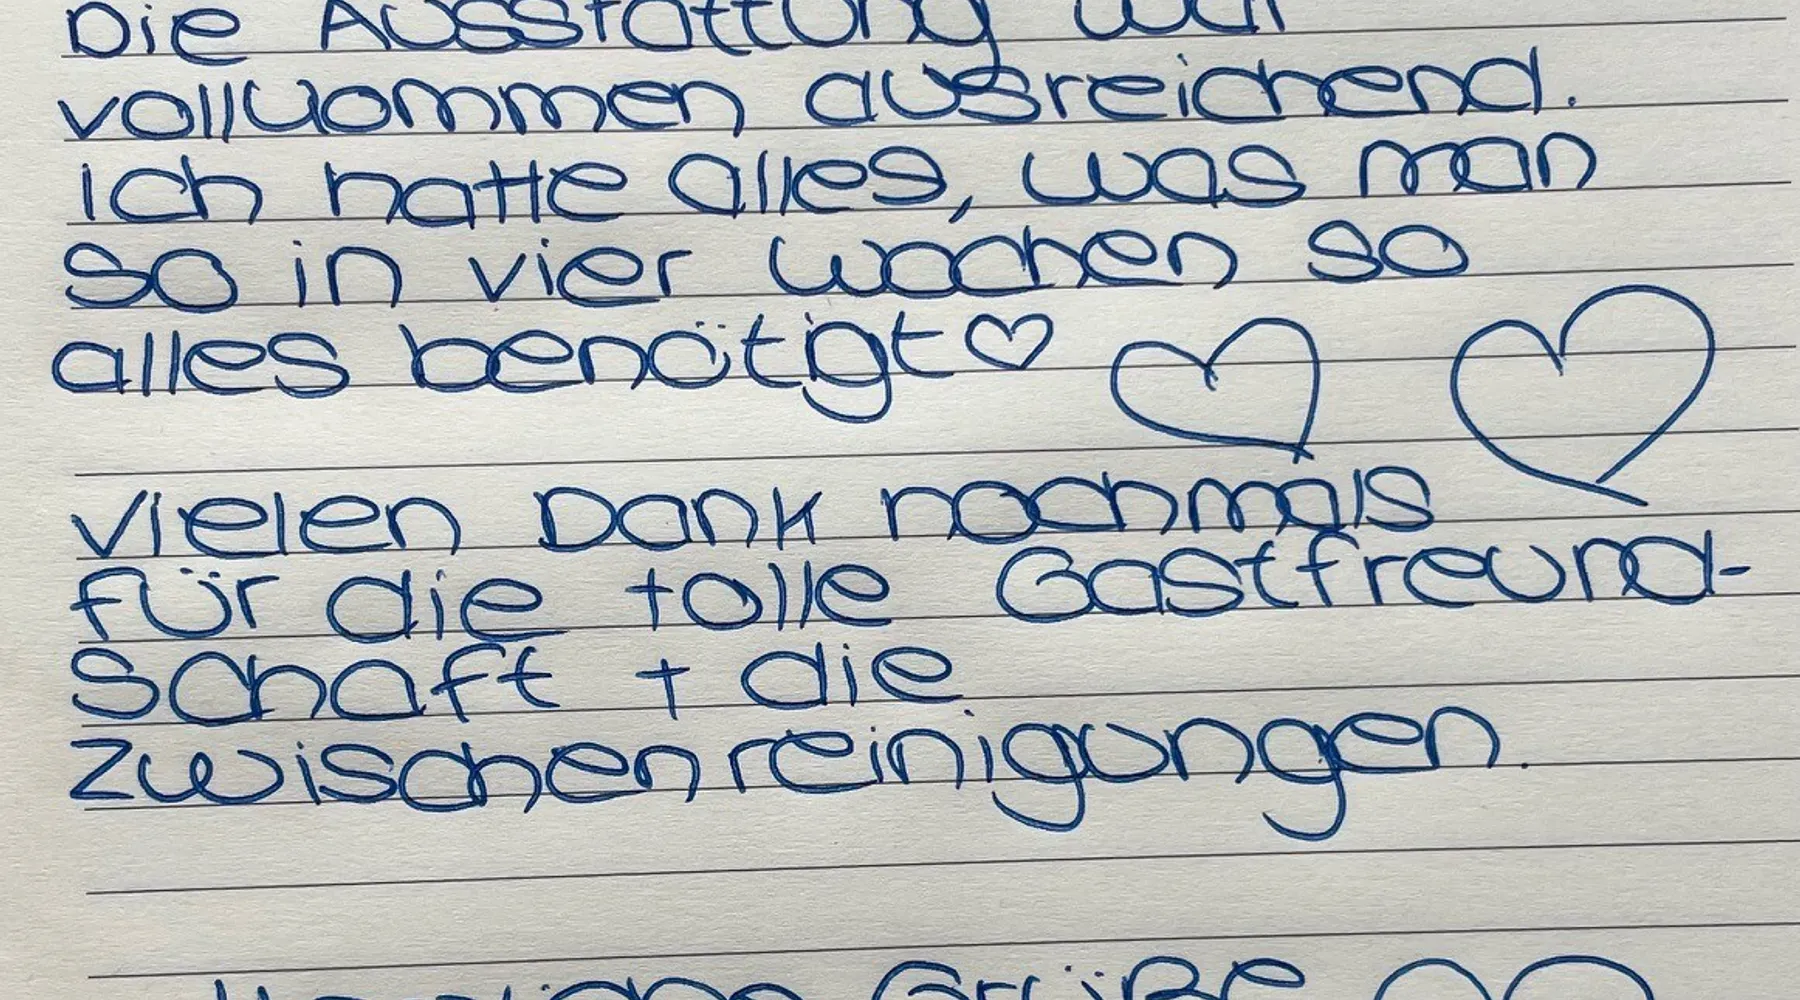 Die Ausstattung war
vollkommen ausreichend.
Ich hatte alles, was man
so in vier Wochen so
alles benötigt♡
Vielen Dank nochmals
für die tolle Gastfreund-
schaft + die
Zwischenreinigungen.
Herzliche Grüße